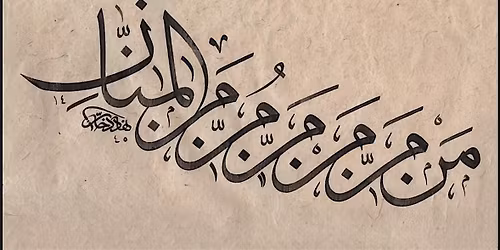 من من من من من من المنان